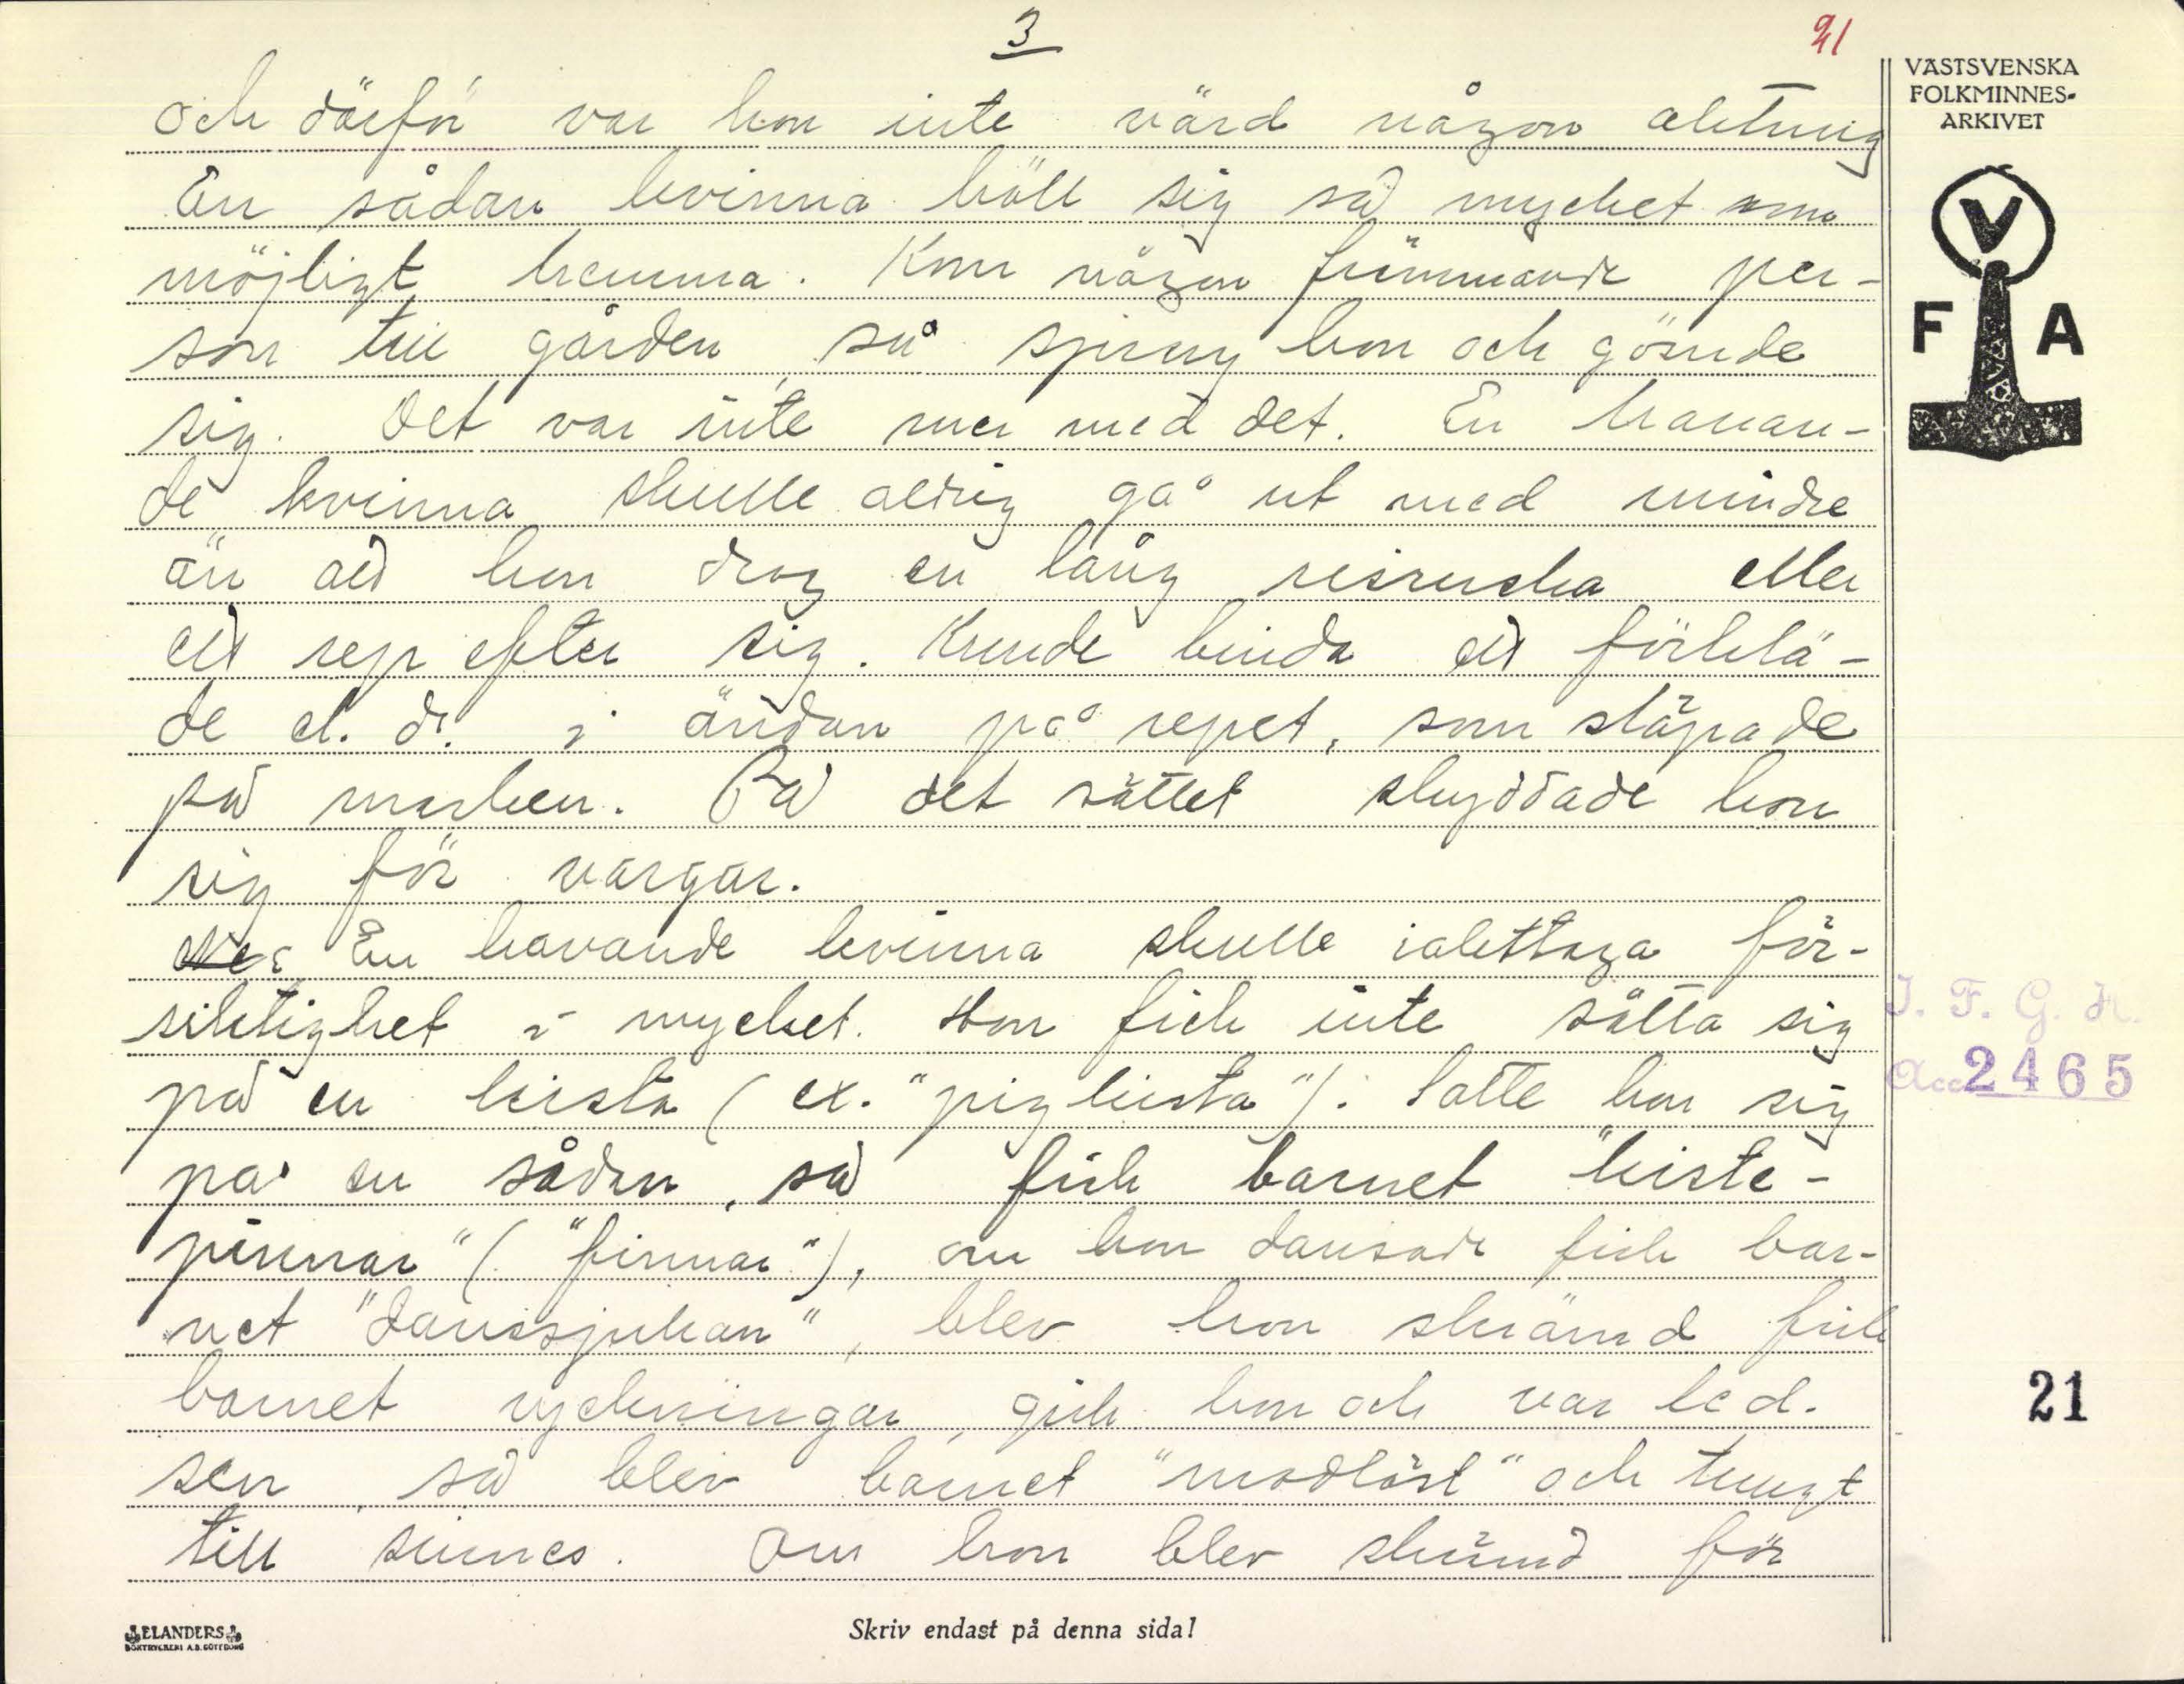 3
21
VÄSTSVENSKA
FOLKMINNES-
ARKIVET
V
F A
och därför var hon inte värd någon aktning
En sådan kvinna höll sig så mycket som
möjligt hemma. Kom någon främmande per-
son till gården, så sprang hon och gömde
sig. Det var inte mer med det. En havan-
de kvinna skulle aldrig gå ut med mindre
än att hon drog en lång risruska eller
ett rep efter sig. Kunde binda ett förklä-
de el. d. i ändan på repet, som släpade
på marken. På det sättet skyddade hon
sig för vargar.
En havande kvinna skulle iakttaga för-
siktighet i mycket. Hon fick inte sätta sig
på en kista (ex. "pigkista"). Satte hon sig
på en sådan, så fick barnet "kiste-
pinnar" ("finnar"), om hon dansade fick bar-
net "danssjukan", blev hon skrämd fick
barnet ryckningar, gick hon och var led-
sen, så blev barnet "modlöst" och tungt
till sinnes. Om hon blev skrämd för
I. F. G. H.
Acc 2465
21
ELANDERS
BOKTRYCKERI A.B. GÖTEBORG
Skriv endast på denna sida!